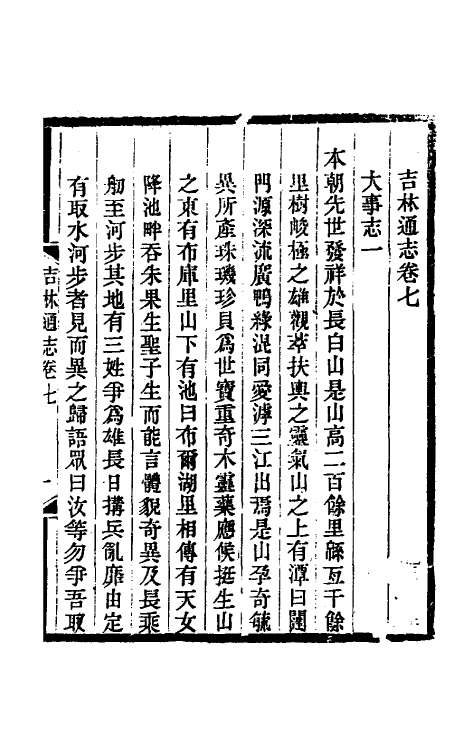 吉林通志卷七
大事志一
本朝先世發祥於長白山是山高二百餘里緜亙千餘
里樹峻極之雄觀萃扶輿之靈氣山之上有潭曰闥
門源深流廣鴨綠混同愛滹三江出焉是山孕奇毓
異所產珠璣珍貝爲世寶重奇木靈藥應候挺生山
之東有布庫里山下有池曰布爾湖里相傳有天女
降池畔吞朱果生聖子生而能言體貌奇異及長乘
舠至河步其地有三姓爭爲雄長日搆兵亂靡由定
有取水河步者見而異之歸語眾曰汝等勿爭吾取
吉林通志卷七
一